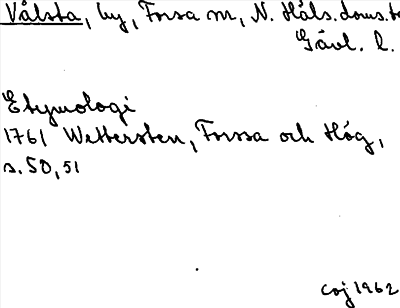 Vålsta, by, Forsa sn, N. Häls. doms.
Gävl. l.
Etymologi
1761 Wettersten, Forssa och Hög,
s. 50, 51
coj 1962